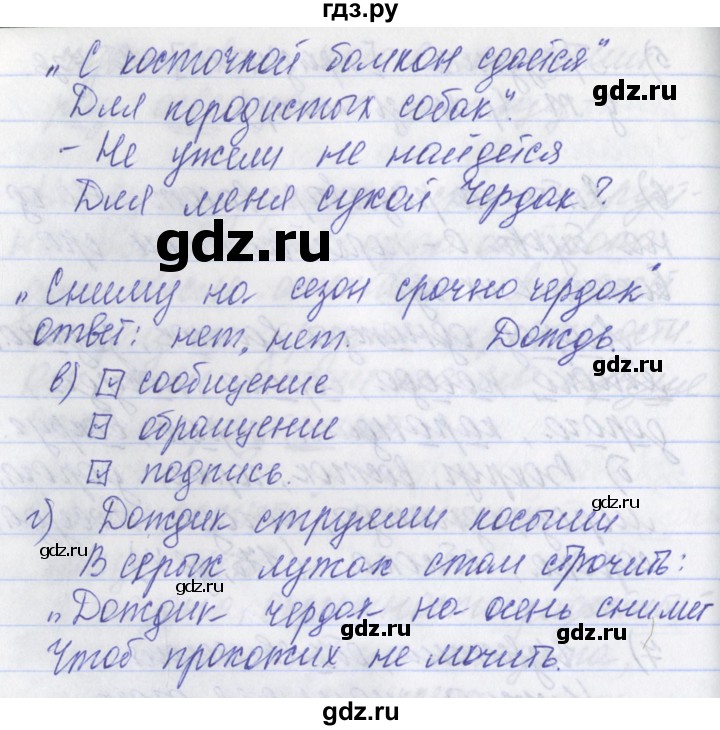 гдз.ру
„С косточкой балкон сдаётся"
Для породистых собак".
- Не ужели не найдется
Для меня сухой Чердак?
gdz.ru
gdz.ru
gdz.ru
„Сниму на сезон срочно чердак"
gdz.ru
ответ: нет, нет. Дождь.
gdz.ru
в) сообщение
gdz.ru
обращение
подпись.
gdz.ru
г) Дождик струями косыми
gdz.ru
В серых лужах стал строчить:
gdz.ru
„Дождик чердак на осень снимет
gdz.ru
gdz.ru
Чтоб прохожих не мочить.
gdz.ru